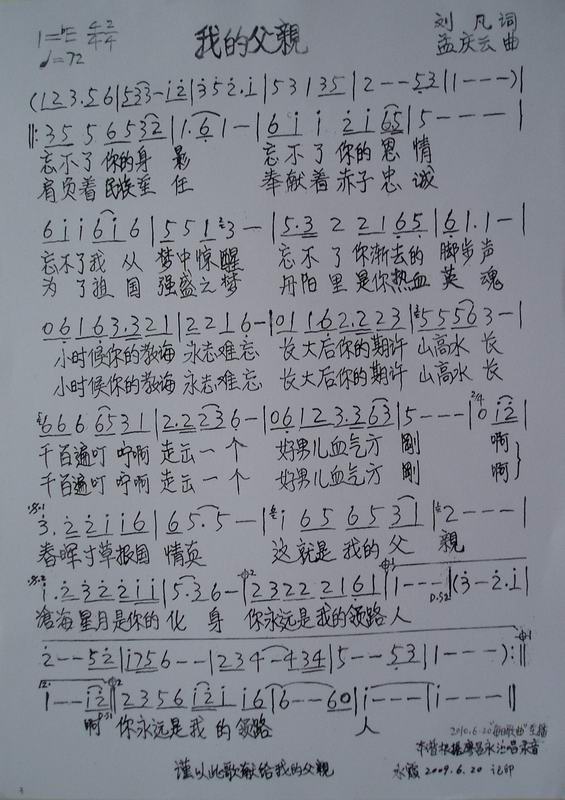 1=♭E 4/4 2/4
我的父親
刘 凡 词
♩=72
孟庆云 曲
(123.56|533--i2|352.i|531 35|2--53|1---)|
‖:35 5 6532|1.61-|6 i i 2i65|5----|
忘不了你的身 影 忘不了你的恩 情
肩负着民族重 任 奉献着赤子忠 诚
6 i i 6i 6|5513-|5.3 2 2165|61.1-|
忘不了我 从 梦中惊醒 忘不了你渐去的 脚步声
为了祖国 强盛之梦 丹阳里是你热血英 魂
06163.321|2216-|01162.223|55563-|
小时候你的教诲 永志难忘 长大后你的期许 山高水 长
小时候你的教诲 永志难忘 长大后你的期许 山高水 长
666 6531|2.2236-|06123.363|5---|2/4 0 i2|
千百遍叮咛啊 走出一个 好男儿血气方 剛 啊
千百遍叮咛啊 走出一个 好男儿血气方 剛 啊
3.22ii6|65.5-|i 65 6531|2---|
春晖寸草报国 情真 这就是 我的 父 親
i.2322ii|5.36-|2322 2161|1---|(3-2.i|
D.S2
滄海星月是你的 化 身 你永远是我的领路人
2--52|i756--|234-434|5--53|1---):‖
1--i2‖2356 i2i i6|6--60|i---|i---‖
D.S1
啊 你永远是我 的 领路 人
2010.6.20
谨以此歌献给我的父親
永霞 2009.6.20 记印